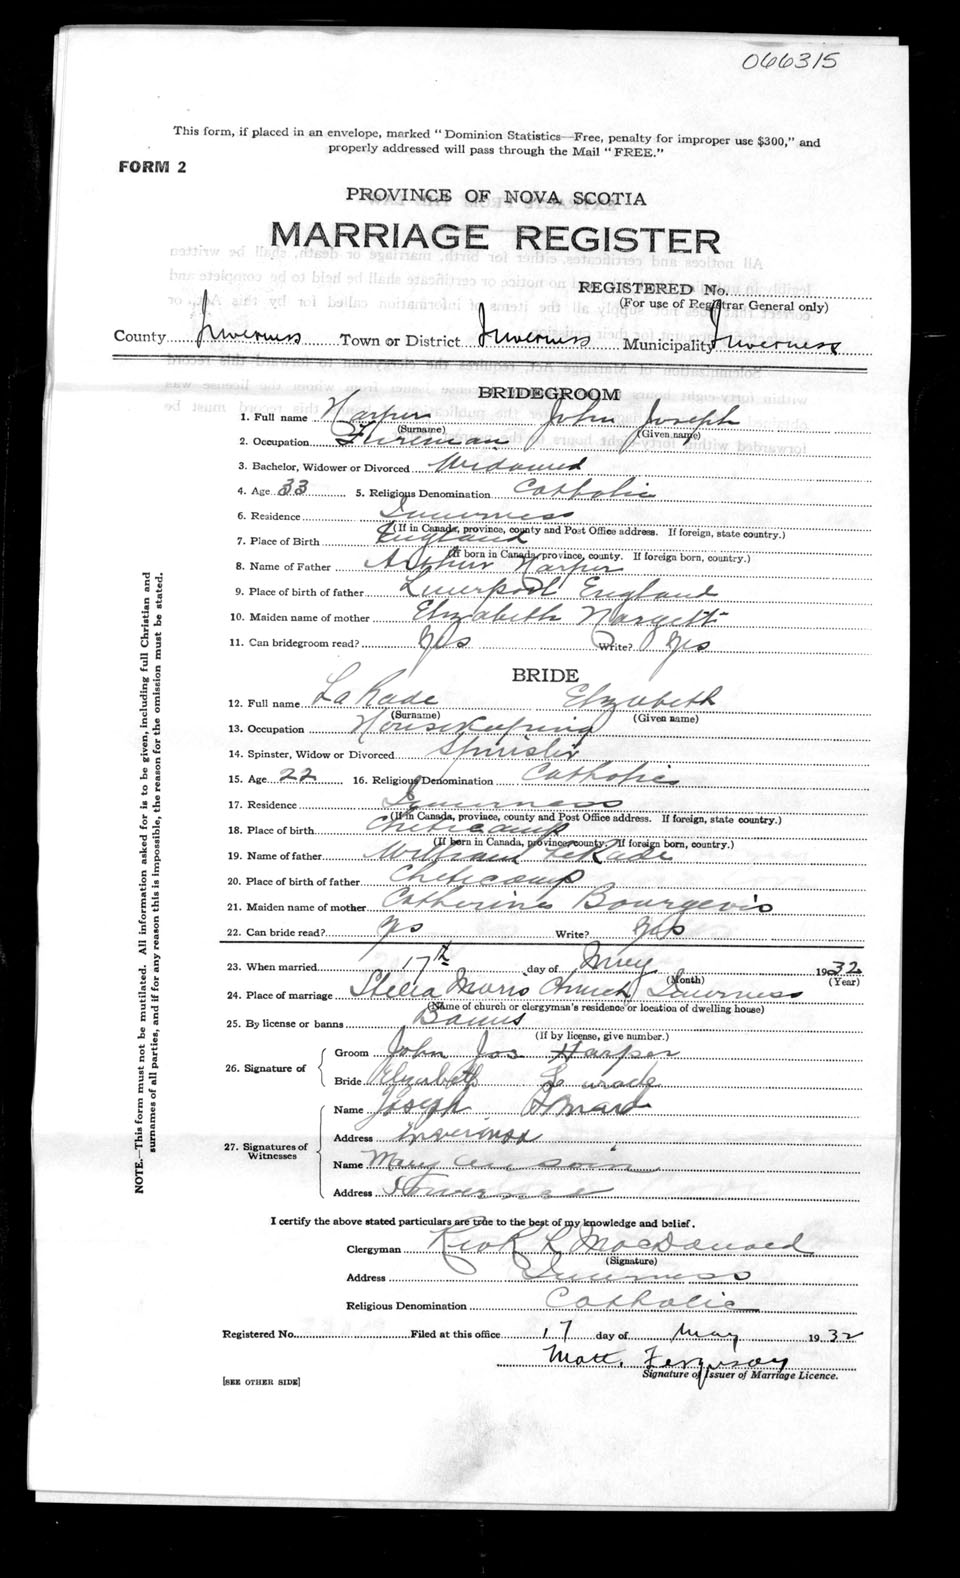 066315
This form, if placed in an envelope, marked "Dominion Statistics—Free, penalty for improper use $300," and
properly addressed will pass through the Mail "FREE."
FORM 2
PROVINCE OF NOVA SCOTIA
MARRIAGE REGISTER
REGISTERED No.
(For use of Registrar General only)
County Inverness Town or District Inverness Municipality Inverness
BRIDEGROOM
1. Full name Harper John Joseph
(Surname) (Given name)
2. Occupation Fireman
3. Bachelor, Widower or Divorced Widowed
4. Age 33 5. Religious Denomination Catholic
6. Residence Inverness
(If in Canada, province, county and Post Office address. If foreign, state country.)
7. Place of Birth England
(If born in Canada, province, county. If foreign born, country.)
8. Name of Father Arthur Harper
9. Place of birth of father Liverpool England
10. Maiden name of mother Elizabeth
11. Can bridegroom read? Yes Write? Yes
BRIDE
12. Full name LaRade Elizabeth
(Surname) (Given name)
13. Occupation Housekeeping
14. Spinster, Widow or Divorced Spinster
15. Age 22 16. Religious Denomination Catholic
17. Residence Inverness
(If in Canada, province, county and Post Office address. If foreign, state country.)
18. Place of birth Cheticamp
(If born in Canada, province, county. If foreign born, country.)
19. Name of father William LeRade
20. Place of birth of father Cheticamp
21. Maiden name of mother Catherine Bourgeois
22. Can bride read? Yes Write? Yes
23. When married 17th day of May 1932
(Month) (Year)
24. Place of marriage Stella Maris Church Inverness
(Name of church or clergyman's residence or location of dwelling house)
25. By license or banns Banns
(If by license, give number.)
26. Signature of
Groom John Jos Harper
Bride Elizabeth
27. Signatures of Witnesses
Name Joseph
Address Inverness
Name Mary
Address Inverness
I certify the above stated particulars are true to the best of my knowledge and belief.
Clergyman Rev R L MacDonald
(Signature)
Address Inverness
Religious Denomination Catholic
Registered No. Filed at this office 17 day of May 1932
Matt. Ferguson
Signature of Issuer of Marriage Licence.
[SEE OTHER SIDE]
NOTE.—This form must not be mutilated. All information asked for is to be given, including full Christian and
surnames of all parties, and if for any reason this is impossible, the reason for the omission must be stated.